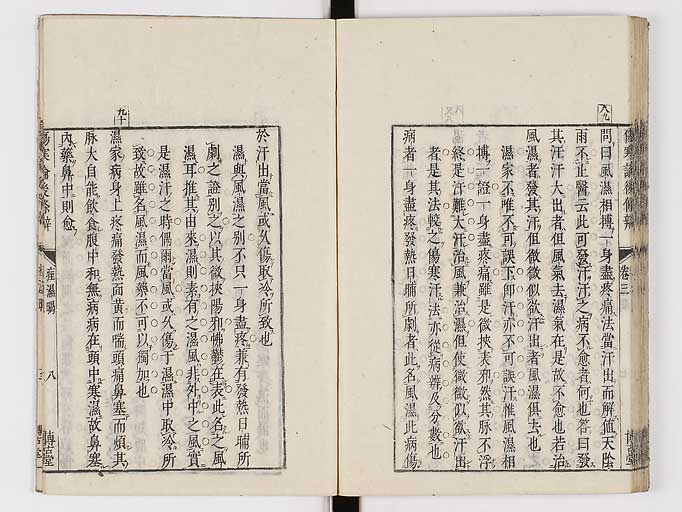 八九
問曰風濕相搏一身盡疼痛法當汗出而解値天陰
雨不止醫云此可發汗汗之病不愈者何也答曰發
其汗汗大出者但風氣去濕氣在是故不愈也若治
風濕者發其汗但微微似欲汗出者風濕俱去也
濕家不唯不可誤下卽汗亦不可誤汗惟風濕相
搏一證一身盡疼痛雖是微挾表邪然其脉不浮
終是汗難大汗治風兼治濕但使微微似欲汗出
者是其法較之傷寒汗法亦從病辨及分數也
病者一身盡疼發熱日晡所劇者此名風濕此病傷
卷三
於汗出當風或久傷取冷所致也
濕與風濕之別不只一身盡疼兼有發熱日晡所
劇之證別之以其微挾陽邪怫鬱在表此名之風
濕耳推其由來濕則素有之濕風非外中之風實
是濕汗之時偶爾當風或久傷于濕濕中取冷所
致故雖名風濕而風藥不可以獨加也
九十
濕家病身上疼痛發熱面黃而喘頭痛鼻塞而煩其
脉大自能飲食腹中和無病病在頭中寒濕故鼻塞
內藥鼻中則愈
痙濕暍
八
博古堂